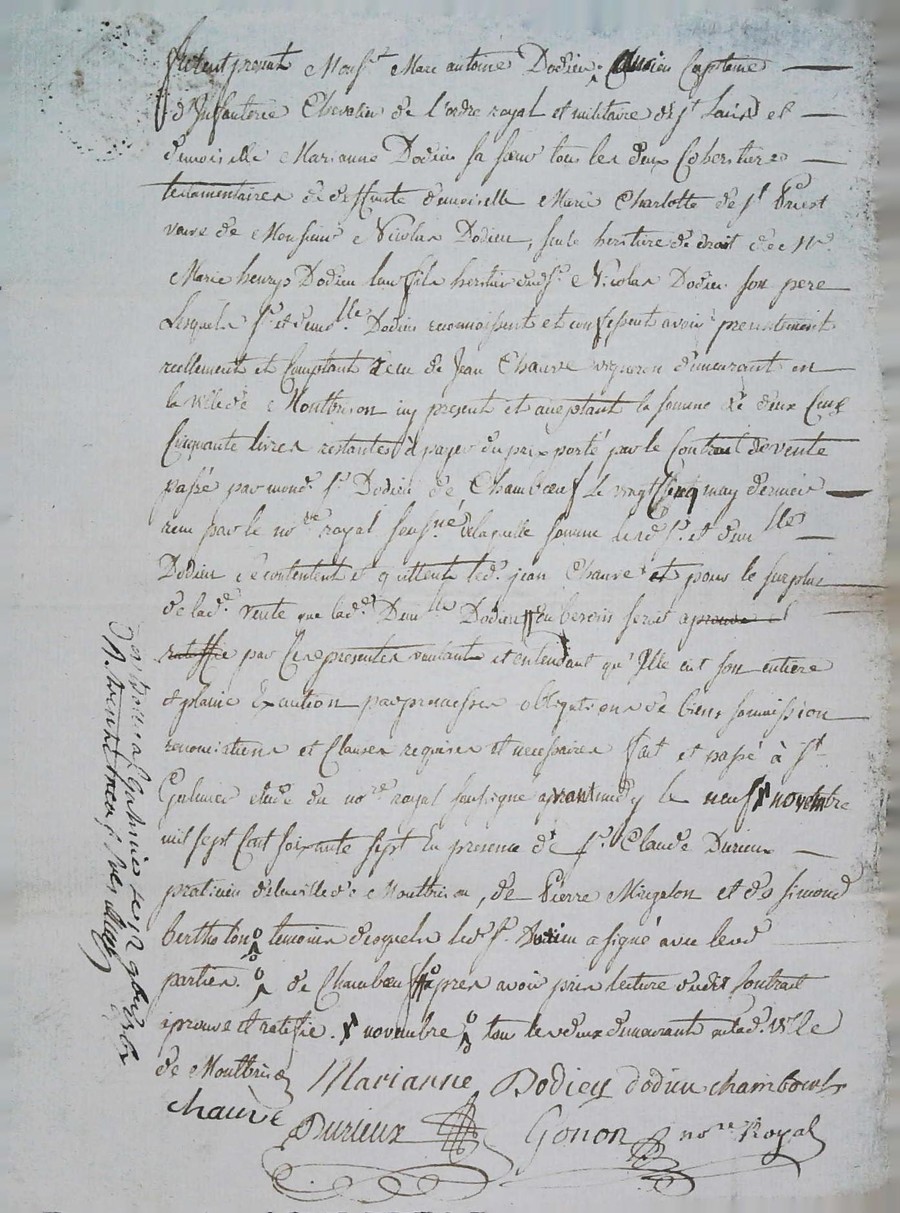 furent present Mons.r Marc antoine Dodieu Ancien Capitaine
d'Infanterie Chevalier de l'ordre royal et militaire de s.t Louis et
demoiselle Marianne Dodieu sa sœur tous les deux Coheritiers
testamentaires de deffunte demoiselle Marie Charlotte de s.t Priest
veuve de Monsieur Nicolas Dodieu, seule heritiere de droit de M.r
Marie henry Dodieu leur fils heritier dud. s.r Nicolas Dodieu son pere
Lesquels s.r et dem.lle Dodieu reconnoissent et confessent avoir presentement
reellement et Comptant Receu de Jean Chauve vigneron demeurant en
la ville de Montbrison icy present et acceptant la somme de deux Cent
Cinquante livres restantes à payer du prix porté par le Contrat de vente
passé par mond. s.r Dodieu de Chambœuf le vingt cinq may dernier
receu par le no.re royal sousigné de laquelle somme lesd. s.r et dem.lle
Dodieu se contentent et quittent led. jean Chauve et pour le surplus
de lad.e vente que lad.e Dem.lle Dodieu en besoin seroit aprouve et
ratiffie par ces presentes voulant et entendant qu'Elle ait son entiere
et plaine Execution par promesses obligations de biens soumission
renonciations et Clauses requises et necessaires fait et passé à s.t
Galmier etude du no.re royal sousigne avant midy le neuf novembre
mil sept Cent soixante sept En presence de s.r Claude Durieux
praticien de la ville de Montbrison, de Pierre Mirgalon et de simond
bertholon temoins desquels led. s.r Durieu a signé avec lesd.
parties. de Chambœuf apres avoir pris lecture dudit Contrat
aprouve et ratifie. novembre tous les deux demeurant en lad. ville
de Montbrison
Marianne Dodieu dodieu chambœuf
chauve
Durieux Gonon no.re Royal